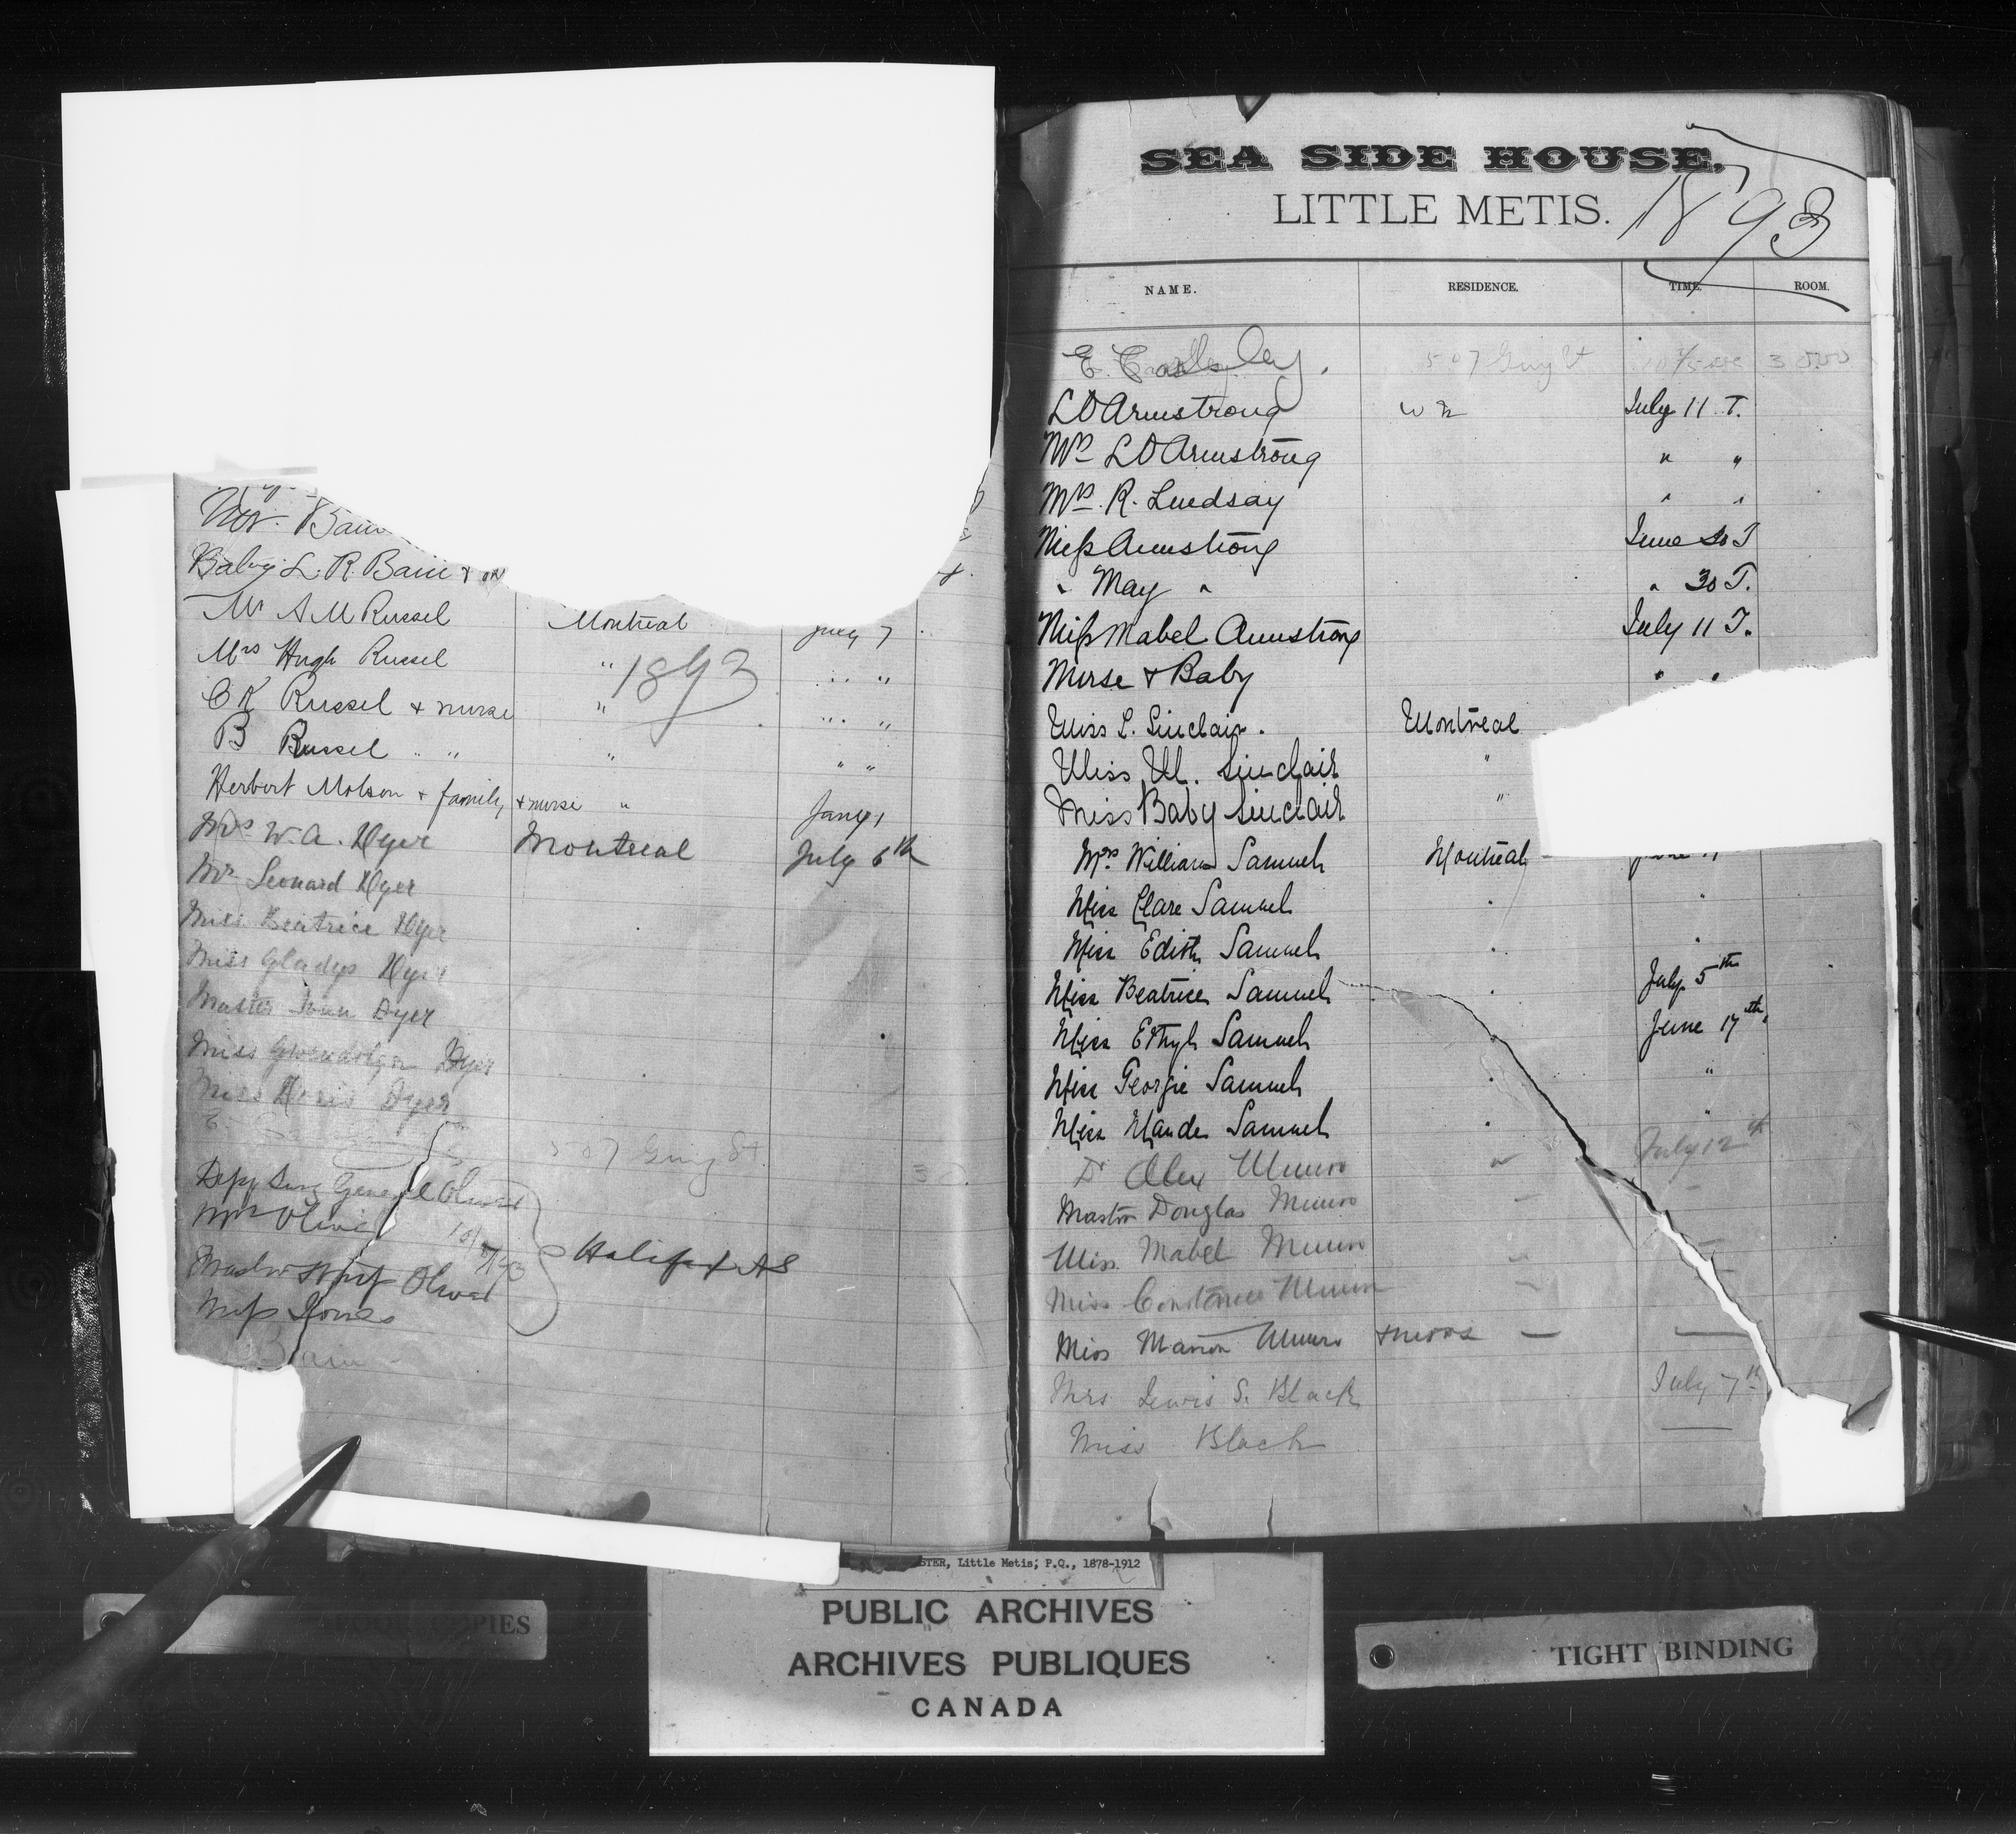 Bain
Baby L. R. Bain +
Mr A M Russel Montreal July 7
Mrs Hugh Russel " 1893 " "
C K Russel + nurse " " "
B Russel " " " " "
Herbert Molson + family + nurse " Jany 1
Mrs W. A. Dyer Montreal July 6th
Mr Leonard Dyer
Miss Beatrice Dyer
Miss Gladys Dyer
Master John Dyer
Miss Gwendolyn Dyer
Miss Doris Dyer
E. 507 Guy St 3
Depy Surg General Oliver
Mrs Oliver
Halifax NS
Master Oliver
Miss Jones
Bain
SEA SIDE HOUSE,
LITTLE METIS. 1893
NAME. RESIDENCE. TIME. ROOM.
E. 507 Guy St
L D Armstrong July 11 T.
Mrs L D Armstrong " "
Mrs. R. Lindsay " "
Miss Armstrong June 30 T
" May " " 30 T.
Miss Mabel Armstrong July 11 T.
Nurse + Baby " "
Miss L. Sinclair. Montreal
Miss M. Sinclair "
Miss Baby Sinclair "
Mrs William Samuel Montreal
Miss Clare Samuel " "
Miss Edith Samuel " "
Miss Beatrice Samuel " July 5th
Miss Ethyl Samuel June 17th
Miss Georgie Samuel " "
Miss Maude Samuel " "
Dr Alex Munro " July 12th
Master Douglas Munro
Miss Mabel Munro
Miss Constance Munro
Miss Marion Munro + nurse
Mrs Lewis S. Black July 7th
Miss Black
STER, Little Metis, P.Q., 1878-1912
PUBLIC ARCHIVES
ARCHIVES PUBLIQUES
CANADA
PIES
TIGHT BINDING